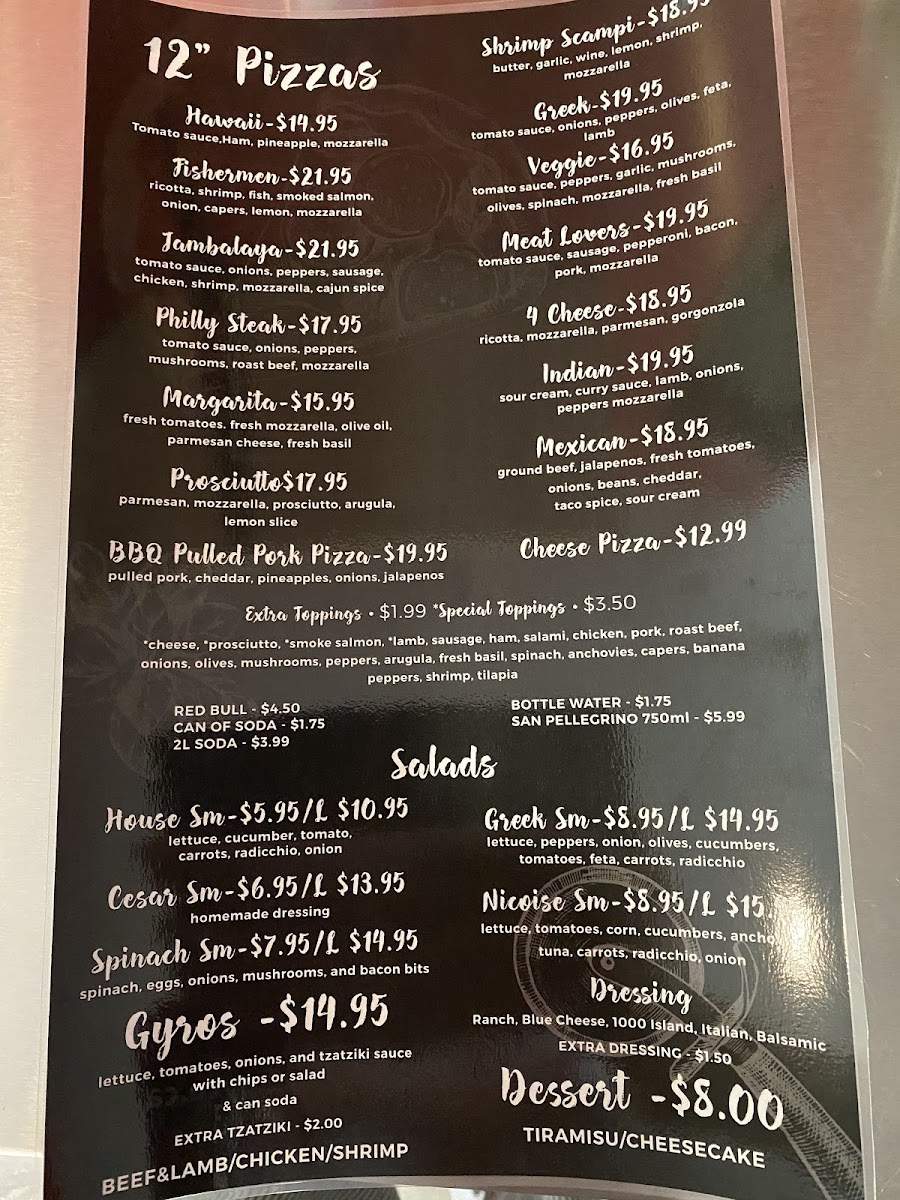 12" Pizzas
Hawaii-$14.95
Tomato sauce,Ham, pineapple, mozzarella
Fishermen-$21.95
ricotta, shrimp, fish, smoked salmon,
onion, capers, lemon, mozzarella
Jambalaya-$21.95
tomato sauce, onions, peppers, sausage,
chicken, shrimp, mozzarella, cajun spice
Philly Steak-$17.95
tomato sauce, onions, peppers,
mushrooms, roast beef, mozzarella
Margarita-$15.95
fresh tomatoes. fresh mozzarella, olive oil,
parmesan cheese, fresh basil
Prosciutto$17.95
parmesan, mozzarella, prosciutto, arugula,
lemon slice
BBQ Pulled Pork Pizza-$19.95
pulled pork, cheddar, pineapples, onions, jalapenos
Shrimp Scampi-$18.95
butter, garlic, wine, lemon, shrimp,
mozzarella
Greek-$19.95
tomato sauce, onions, peppers, olives, feta,
lamb
Veggie-$16.95
tomato sauce, peppers, garlic, mushrooms,
olives, spinach, mozzarella, fresh basil
Meat Lovers-$19.95
tomato sauce, sausage, pepperoni, bacon,
pork, mozzarella
4 Cheese-$18.95
ricotta, mozzarella, parmesan, gorgonzola
Indian-$19.95
sour cream, curry sauce, lamb, onions,
peppers mozzarella
Mexican-$18.95
ground beef, jalapenos, fresh tomatoes,
onions, beans, cheddar,
taco spice, sour cream
Cheese Pizza-$12.99
Extra Toppings • $1.99 *Special Toppings • $3.50
*cheese, *prosciutto, *smoke salmon, *lamb, sausage, ham, salami, chicken, pork, roast beef,
onions, olives, mushrooms, peppers, arugula, fresh basil, spinach, anchovies, capers, banana
peppers, shrimp, tilapia
RED BULL - $4.50
CAN OF SODA - $1.75
2L SODA - $3.99
BOTTLE WATER - $1.75
SAN PELLEGRINO 750ml - $5.99
Salads
House Sm-$5.95/L $10.95
lettuce, cucumber, tomato,
carrots, radicchio, onion
Cesar Sm-$6.95/L $13.95
homemade dressing
Spinach Sm-$7.95/L $14.95
spinach, eggs, onions, mushrooms, and bacon bits
Gyros -$14.95
lettuce, tomatoes, onions, and tzatziki sauce
with chips or salad
& can soda
EXTRA TZATZIKI - $2.00
BEEF&LAMB/CHICKEN/SHRIMP
Greek Sm-$8.95/L $14.95
lettuce, peppers, onion, olives, cucumbers,
tomatoes, feta, carrots, radicchio
Nicoise Sm-$8.95/L $15
lettuce, tomatoes, corn, cucumbers,
tuna, carrots, radicchio, onion
Dressing
Ranch, Blue Cheese, 1000 Island, Italian, Balsamic
EXTRA DRESSING - $1.50
Dessert -$8.00
TIRAMISU/CHEESECAKE